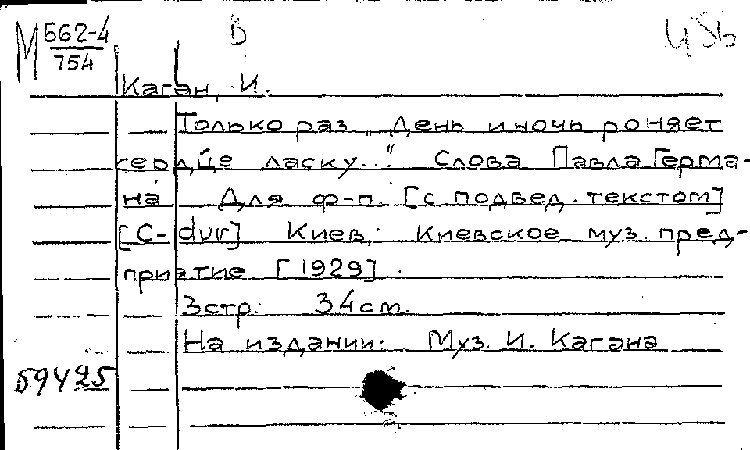 М 562-4
754
В
Каган, И.
Только раз „День и ночь роняет
сердце ласку..." Слова Павла Герма-
на Для ф-п. [с подвед. текстом]
[C-dur] Киев, Киевское муз. пред-
приятие [1929].
3стр. 34см.
На издании: Муз. И. Кагана
59425